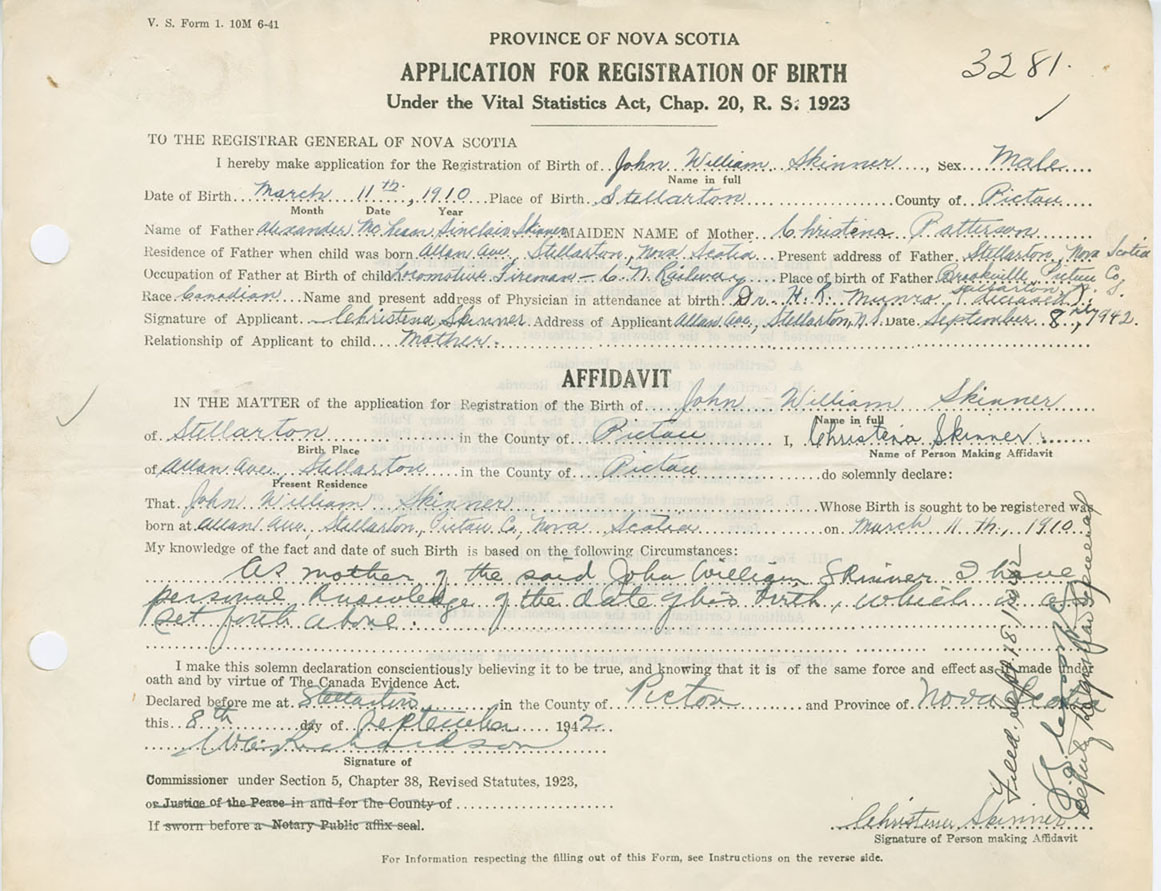 V. S. Form 1. 10M 6-41
PROVINCE OF NOVA SCOTIA
3281.
APPLICATION FOR REGISTRATION OF BIRTH
Under the Vital Statistics Act, Chap. 20, R. S. 1923
TO THE REGISTRAR GENERAL OF NOVA SCOTIA
I hereby make application for the Registration of Birth of John William Skinner, Sex Male
Name in full
Date of Birth March 11th, 1910 Place of Birth Stellarton County of Pictou
Month Date Year
Name of Father Alexander McLean Sinclair Skinner MAIDEN NAME of Mother Christena Patterson
Residence of Father when child was born Allan Ave., Stellarton, Nova Scotia Present address of Father Stellarton, Nova Scotia
Occupation of Father at Birth of child Locomotive Fireman - C. N. Railway Place of birth of Father Brookville, Pictou Co.
Race Canadian Name and present address of Physician in attendance at birth Dr. H. R. Munro, deceased N. S.
Signature of Applicant Christena Skinner Address of Applicant Allan Ave., Stellarton, N.S. Date September 8, 1942.
Relationship of Applicant to child Mother.
AFFIDAVIT
IN THE MATTER of the application for Registration of the Birth of John William Skinner
Name in full
of Stellarton in the County of Pictou I, Christena Skinner
Birth Place Name of Person Making Affidavit
of Allan Ave., Stellarton in the County of Pictou do solemnly declare:
Present Residence
That John William Skinner Whose Birth is sought to be registered was
born at Allan Ave., Stellarton, Pictou Co., Nova Scotia on March 11th, 1910
My knowledge of the fact and date of such Birth is based on the following Circumstances:
As mother of the said John William Skinner I have
personal knowledge of the date of his birth, which is as
set forth above.
I make this solemn declaration conscientiously believing it to be true, and knowing that it is of the same force and effect as if made under
oath and by virtue of The Canada Evidence Act.
Declared before me at Stellarton in the County of Pictou and Province of Nova Scotia
this 8th day of September 1942
Richardson
Signature of
Commissioner under Section 5, Chapter 38, Revised Statutes, 1923,
or Justice of the Peace in and for the County of
If sworn before a Notary Public affix seal.
Christena Skinner
Signature of Person making Affidavit
For Information respecting the filling out of this Form, see Instructions on the reverse side.
Filed. Sept. 18, 1942
Deputy Registrar General